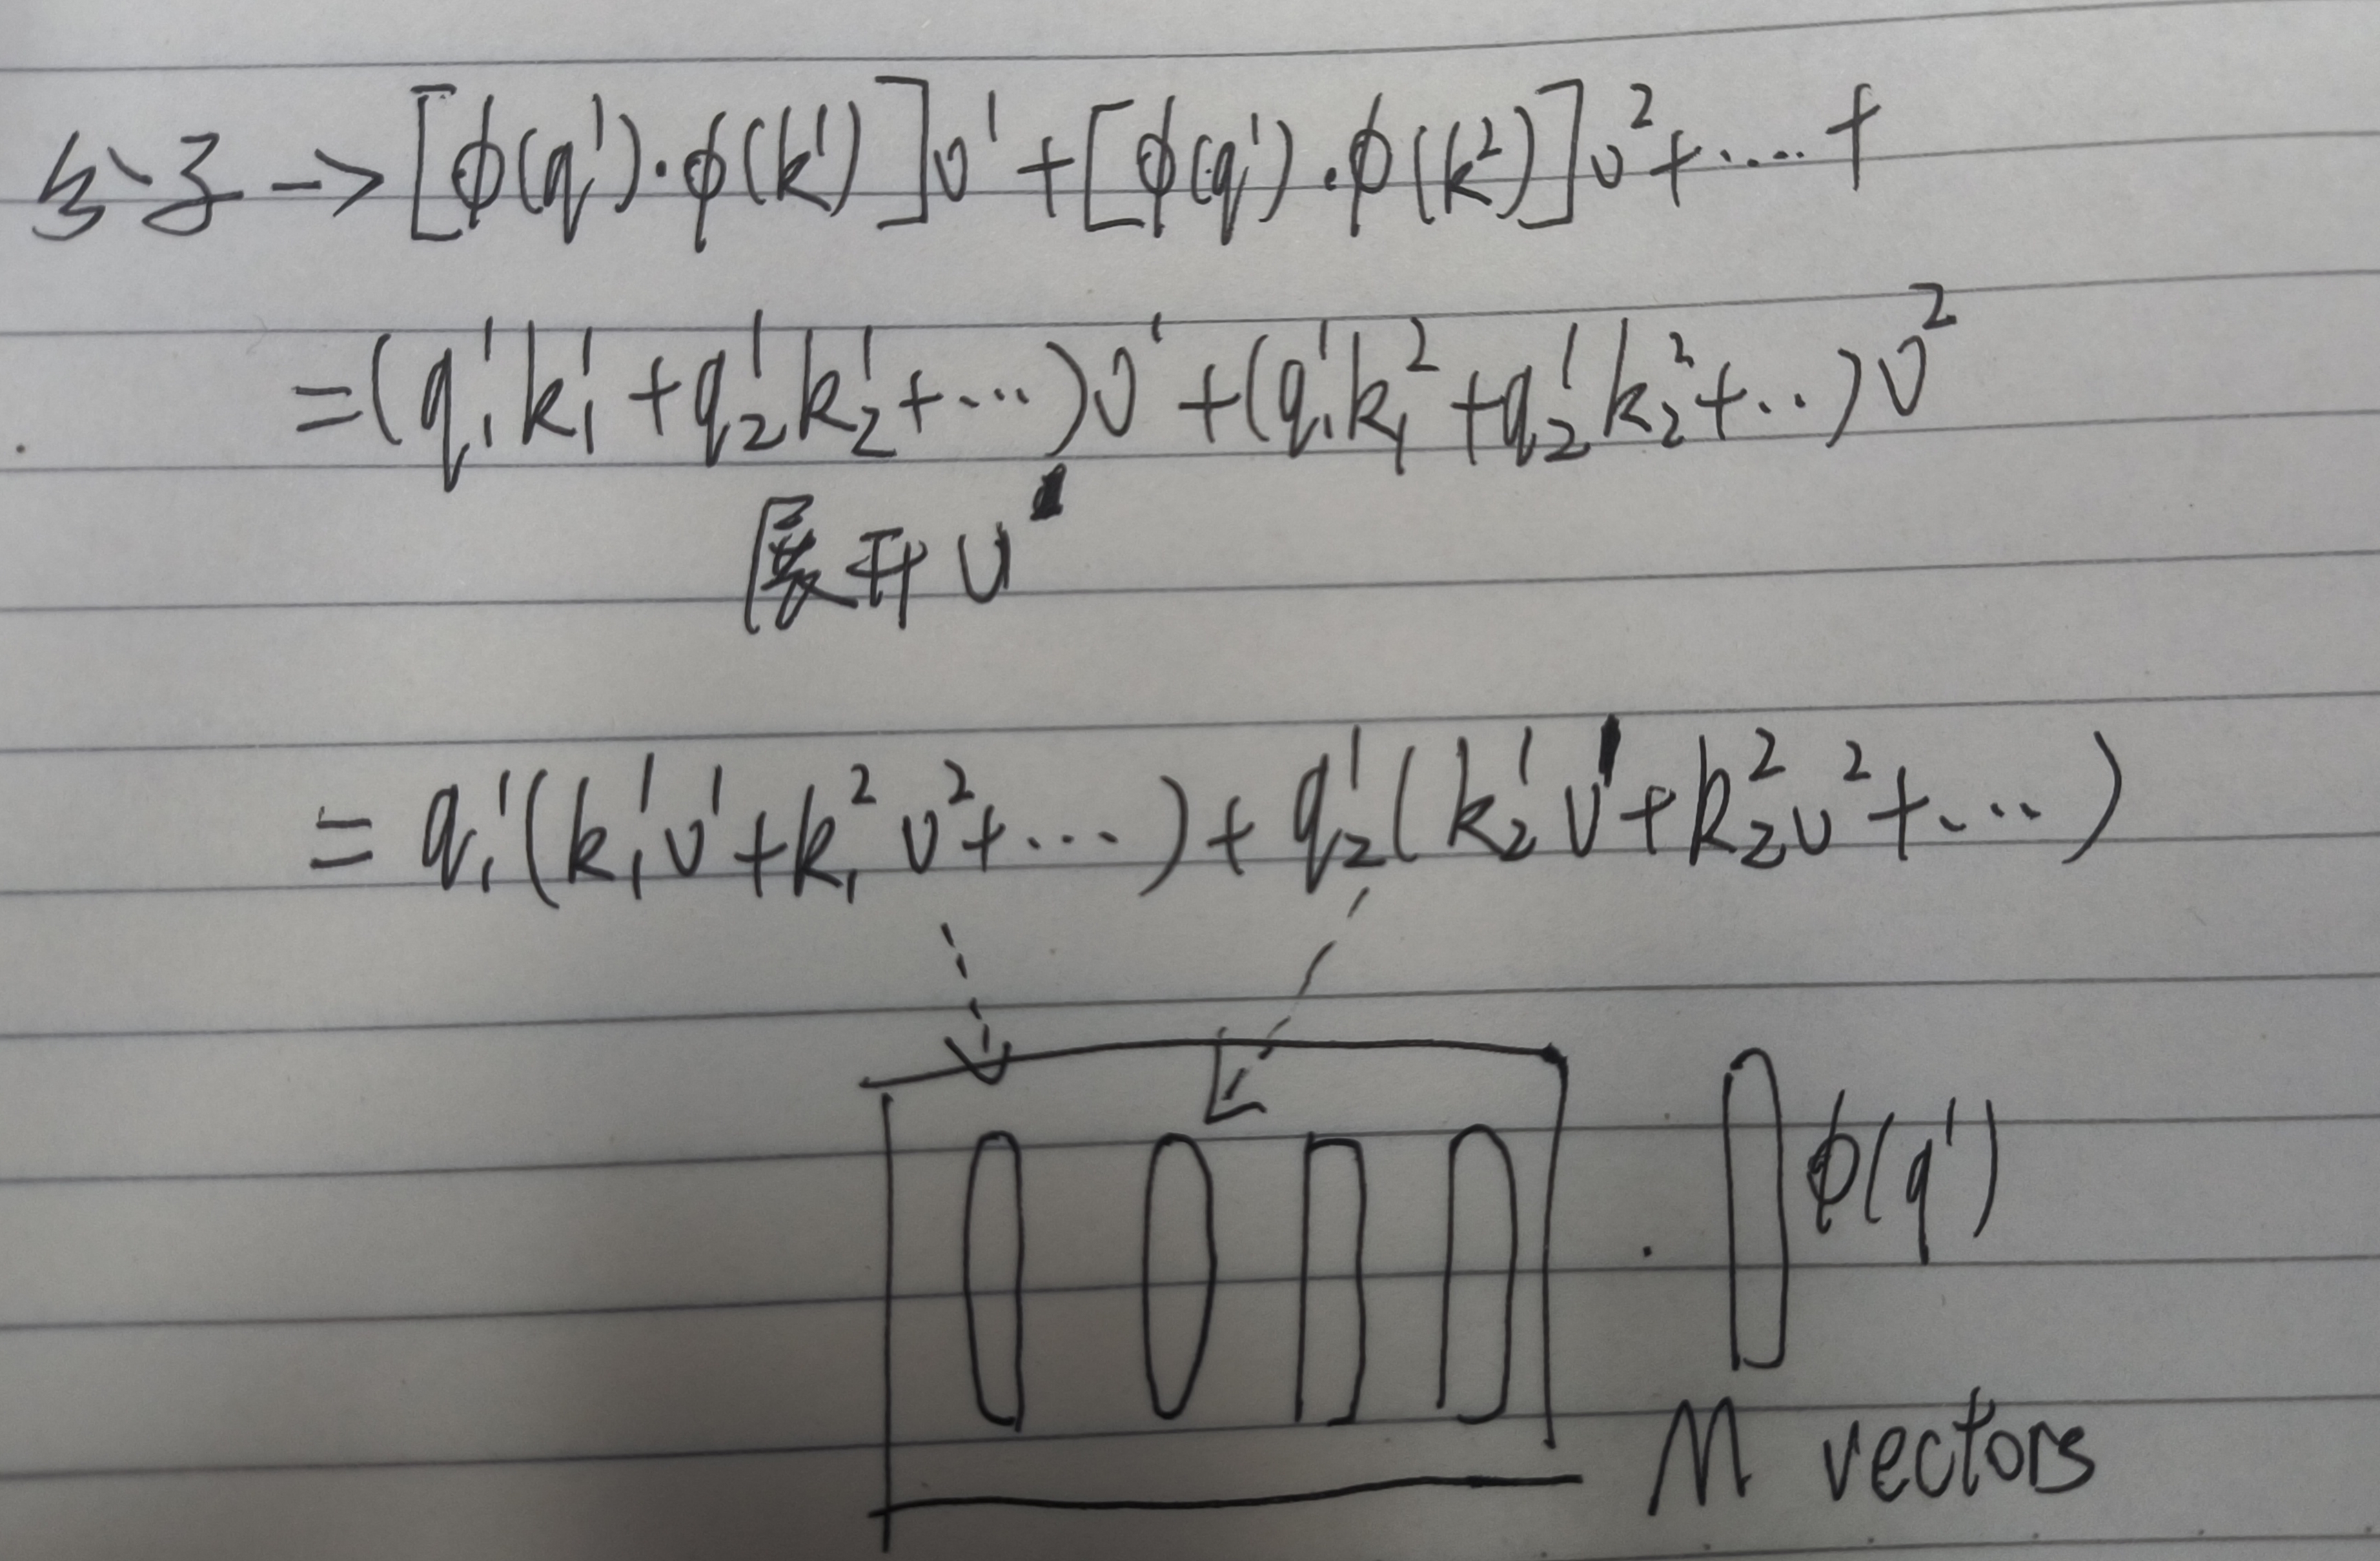 分子 -> [ϕ(q¹)·ϕ(k¹)]v¹+[ϕ(q¹)·ϕ(k²)]v²+....+
=(q₁¹k₁¹+q₂¹k₂¹+...)v¹+(q₁¹k₁²+q₂¹k₂²+...)v²
展开v¹
=q₁¹(k₁¹v¹+k₁²v²+...)+q₂¹(k₂¹v¹+k₂²v²+...)
· ϕ(q¹)
M vectors